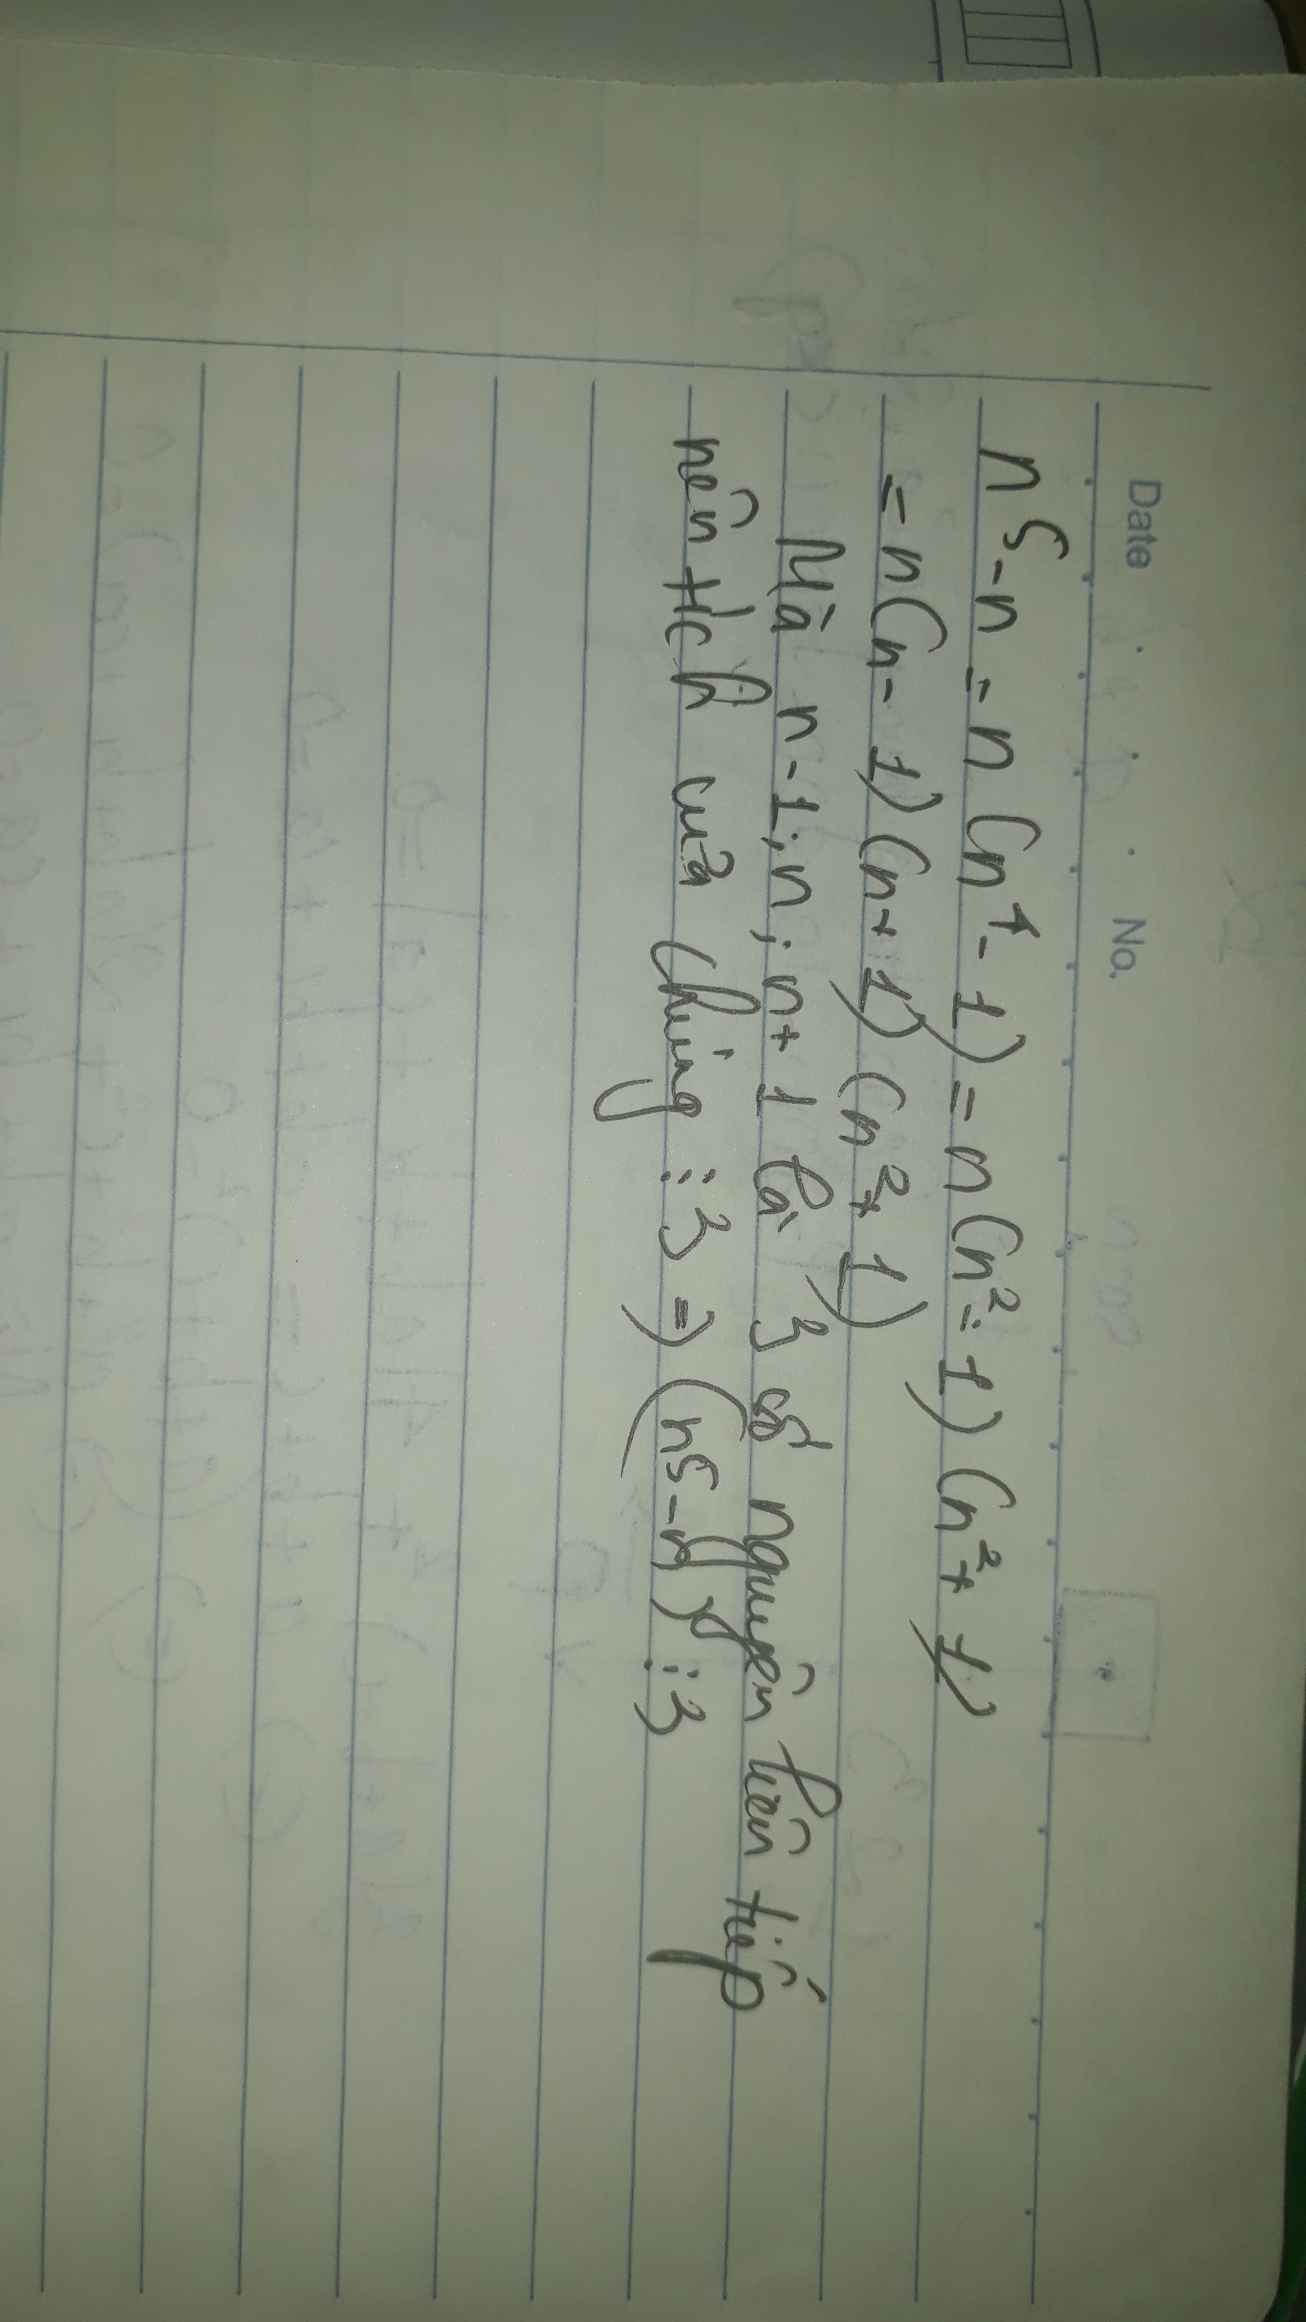 Date No.
n⁵-n = n(n⁴-1) = n(n²-1)(n²+1)
= n(n-1)(n+1)(n²+1)
Mà n-1; n; n+1 là 3 số nguyên liên tiếp
nên tích của chúng ⋮3 => (n⁵-n)⋮3